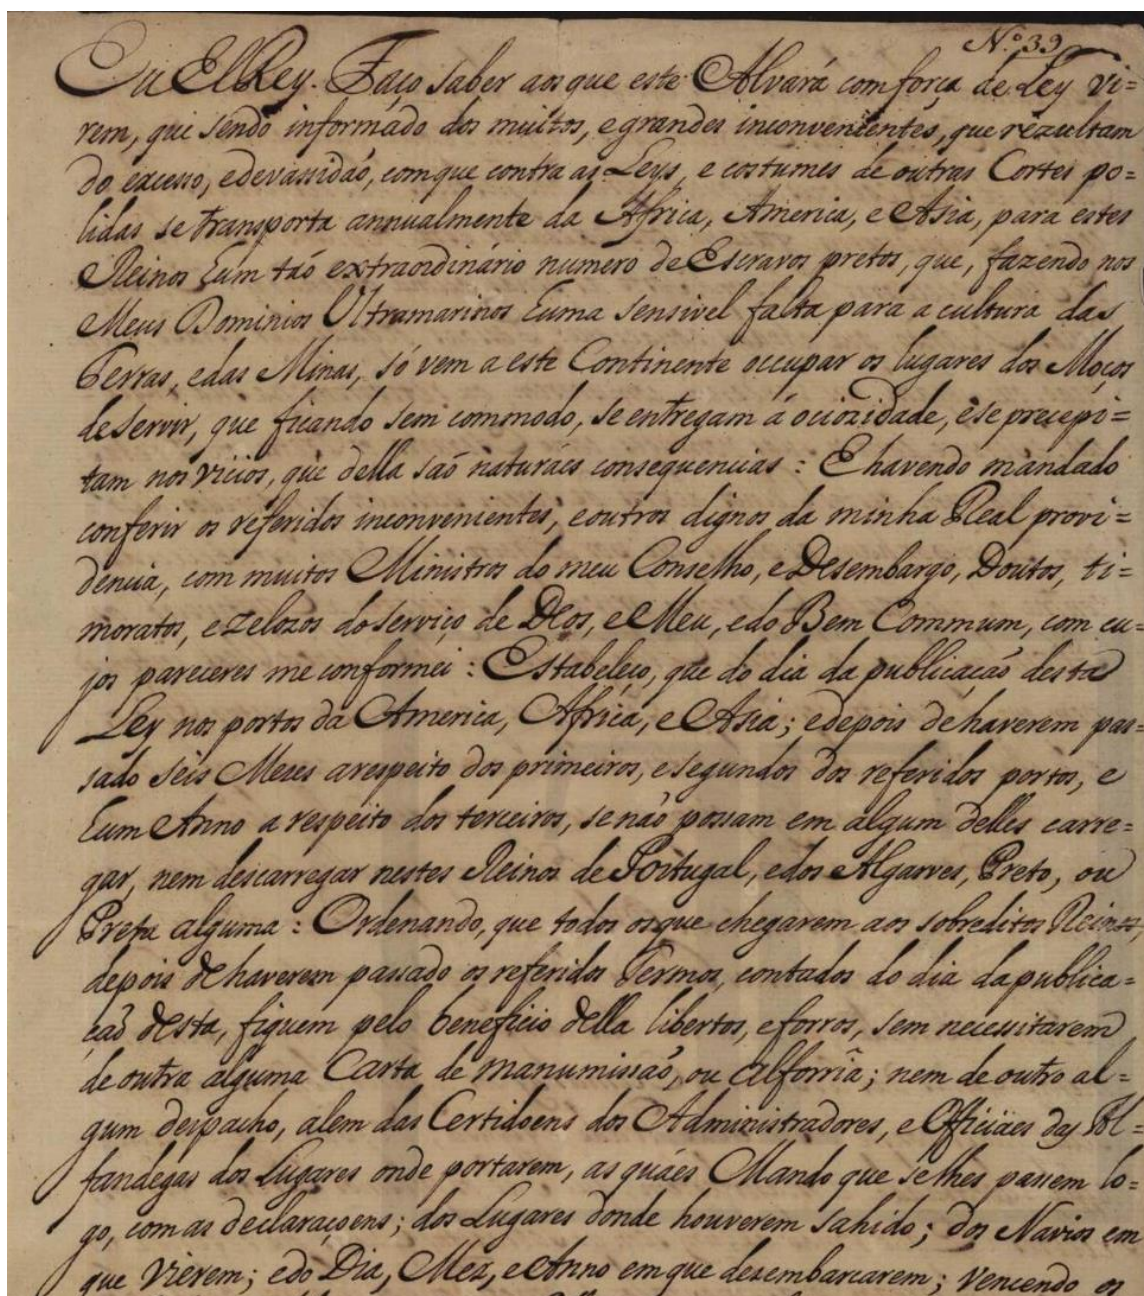 N.º 39
Eu ElRey. Faço saber aos que este Alvará com força de Ley vi=
rem, que sendo informado dos muitos, e grandes inconvenientes, que rezultam
do excesso, e devassidaõ, com que contra as Leys, e costumes de outras Cortes po=
lidas se transporta annualmente da Africa, America, e Asia, para estes
Reinos hum taõ extraordinário numero de Escravos pretos, que, fazendo nos
Meus Dominios Ultramarinos huma sensivel falta para a cultura das
Terras, e das Minas, só vem a este Continente occupar os lugares dos Moços
de servir, que ficando sem commodo, se entregam á ociozidade, e se precepi=
tam nos vicios, que della saõ naturáes consequencias : E havendo mandado
conferir os referidos inconvenientes, e outros dignos da minha Real provi=
dencia, com muitos Ministros do meu Conselho, e Desembargo, Doutos, ti=
moratos, e zelozos do serviço de Deos, e Meu, e do Bem Commum, com cu=
jos pareceres me conformei : Estabeleço, que do dia da publicaçaõ desta
Ley nos portos da America, Africa, e Asia ; e depois de haverem pas=
sado seis Mezes a respeito dos primeiros, e segundos dos referidos portos, e
hum Anno a respeito dos terceiros, se naõ possam em algum delles carre=
gar, nem descarregar nestes Reinos de Portugal, e dos Algarves, Preto, ou
Preta alguma : Ordenando, que todos os que chegarem aos sobreditos Reinos,
depois de haverem passado os referidos Termos, contados do dia da publica=
çaõ desta, fiquem pelo beneficio della libertos, e forros, sem necessitarem
de outra alguma Carta de manumissaõ, ou alforria ; nem de outro al=
gum despacho, alem das Certidoens dos Administradores, e Officiáes das Al=
fandegas dos Lugares onde portarem, as quáes Mando que se lhes passem lo=
go, com as declaraçoens ; dos Lugares donde houverem sahido ; dos Navios em
que vierem ; e do Dia, Mez, e Anno em que desembarcarem ; vencendo os